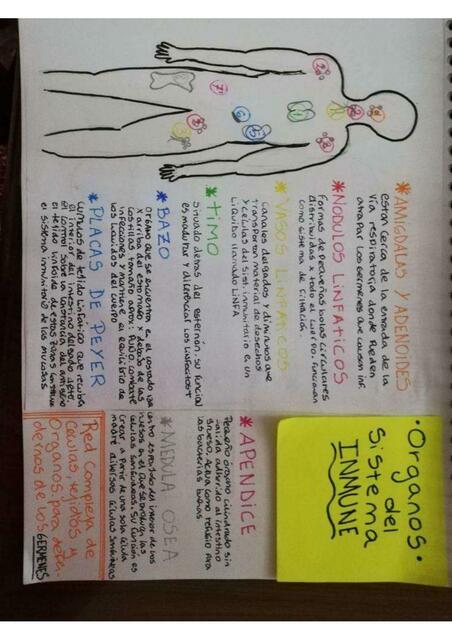 ·Organos·
del
Sistema
INMUNE
*AMIGDALAS Y ADENOIDES
estan cerca de la entrada de la
via respiratoria donde pueden
atrapar los germenes que causan inf.
*NODULOS LINFATICOS
Formas de pequeñas bolas circulares
distribuidas x todo el cuerpo. Funcionan
como sistema de
*VASOS LINFATICOS
Canales delgados y diminutos que
transportan material de desechos
y celulas del sist. inmunitario en un
liquido llamado LINFA
*TIMO
Situado detras del esternón, su función
es madurar y diferenciar los linfocitos T
*BAZO
Organo que se encuentra en el costado izq
x arriba del estomago x debajo de las
costillas tamaño aprox: Puño, combate
infecciones y mantiene el equilibrio de
los liquidos del cuerpo
*PLACAS DE PEYER
Cumulos de tejido linfatico que recubren
el interior del intestino delgado
el tejido linfoide de estas zonas constituye
el sistema inmunitario de las mucosas.
*APENDICE
Pequeño organo cilindrico sin
salida adherido al intestino
grueso, actua como refugio para
las bacterias buenas
*MEDULA OSEA
centro esponjoso del interior de los
huesos en el que se producen las
celulas sanguineas. Su función es
crear, a partir de una sola celula
madre diversas celulas sanguineas
Red Compleja de
Celulas tejidos y
Organos para defen-
dernos de los GERMENES